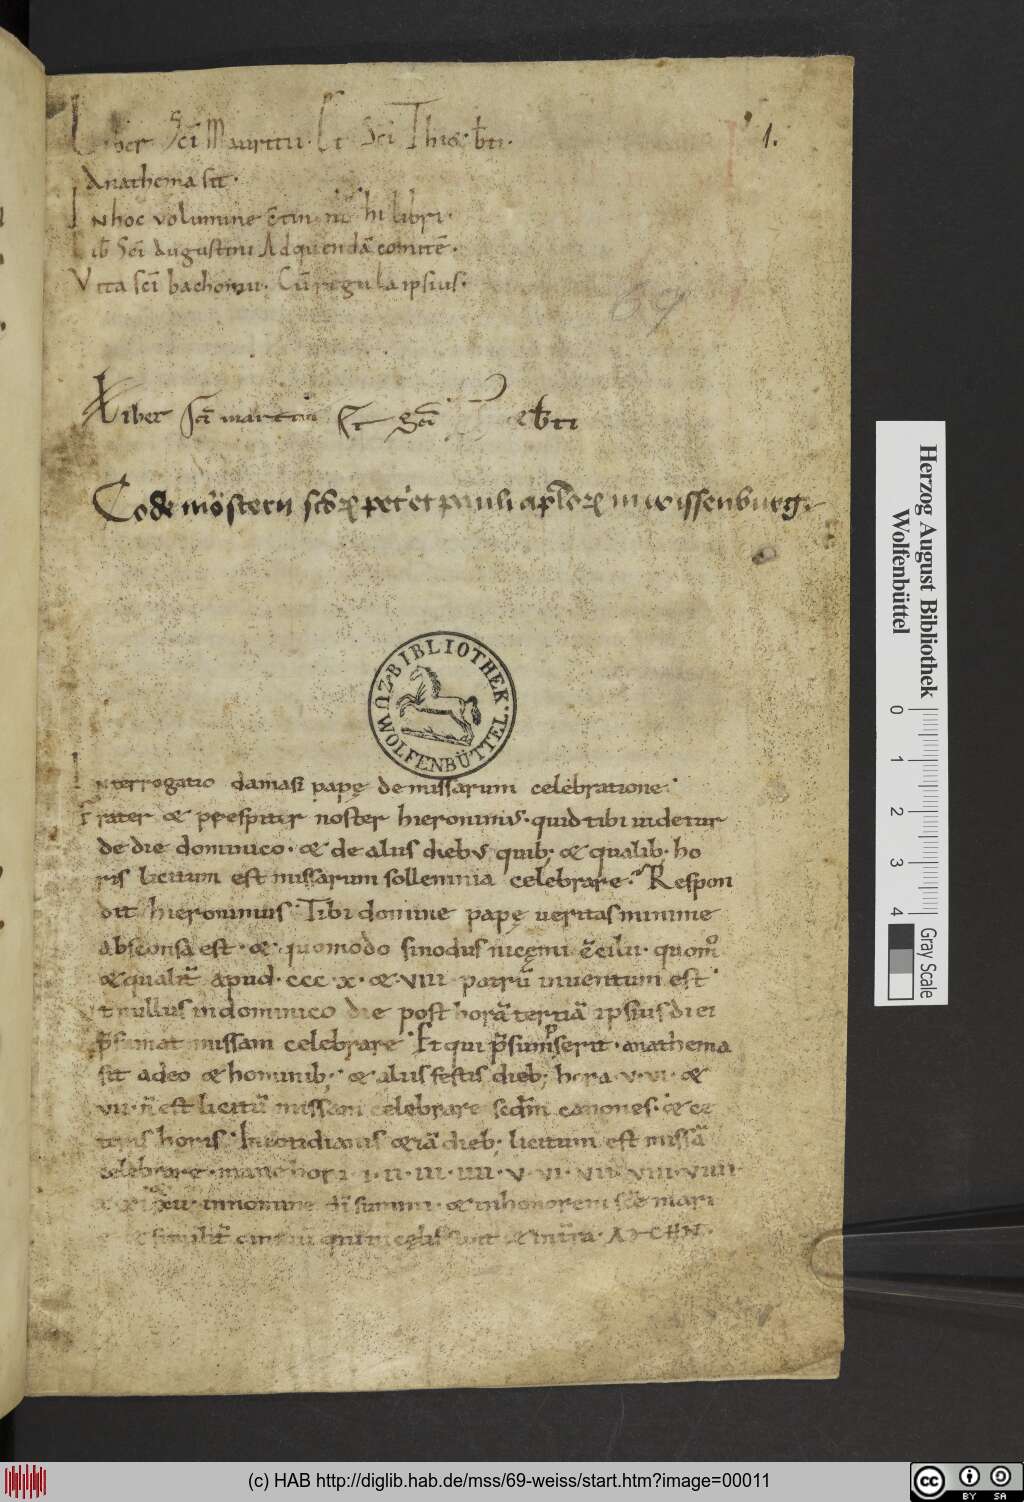 Liber Sc̄i Mauritii · Et Sc̄i Thiæb̄ti · 1.
Anathema sit ·
In hoc volumine c̄tin hi libri ·
Lib̄ Sc̄i Augustini Ad quendā comitē ·
Vita sc̄i bachomii · Cū regula ipsius ·
69
Liber sc̄i mauricii Et sc̄i eb̄ti
Codex petˀ et pauli in wissenburg ·
BIBLIOTHEK · WOLFENBÜTTEL · ZU
Interrogatio damasi papę de missarum celebratione ·
Frater & prespiter noster hieronimus · quid tibi videtur
de die dominico · & de aliis diebus quib; & qualib; ho
ris licitum est missarum sollemnia celebrare · Respon
dit hieronimus · Tibi domine papę veritas minime
absconsa est · & quomodo sinodus nicęni c̄cilii · quom̊
& qualit̄ apud · ccc · x · & · viii patrū inventum est
t nullus in dominico die post horā tertiā ipsius diei
p̄sumat missam celebrare · Et qui p̄sumpserit · anathema
sit adeo & hominib; · & aliis festis dieb; hora · v · vi · &
vii · n̄ est licitū missam celebrare scdm̄ canones · & ce
teris horis · In cotidianis &iā dieb; licitum est missā
celebrare · mane hora · i · ii · iii · iiii · v · vi · vii · viii · viiii ·
xi xii · in nomine dī summi · & in honorem sc̄ę mari
similit̄ qui in cęlis sunt & in t̄ra · AMHN ·
Herzog August Bibliothek
Wolfenbüttel
0 1 2 3 4
Gray Scale
(c) HAB http://diglib.hab.de/mss/69-weiss/start.htm?image=00011
cc BY SA